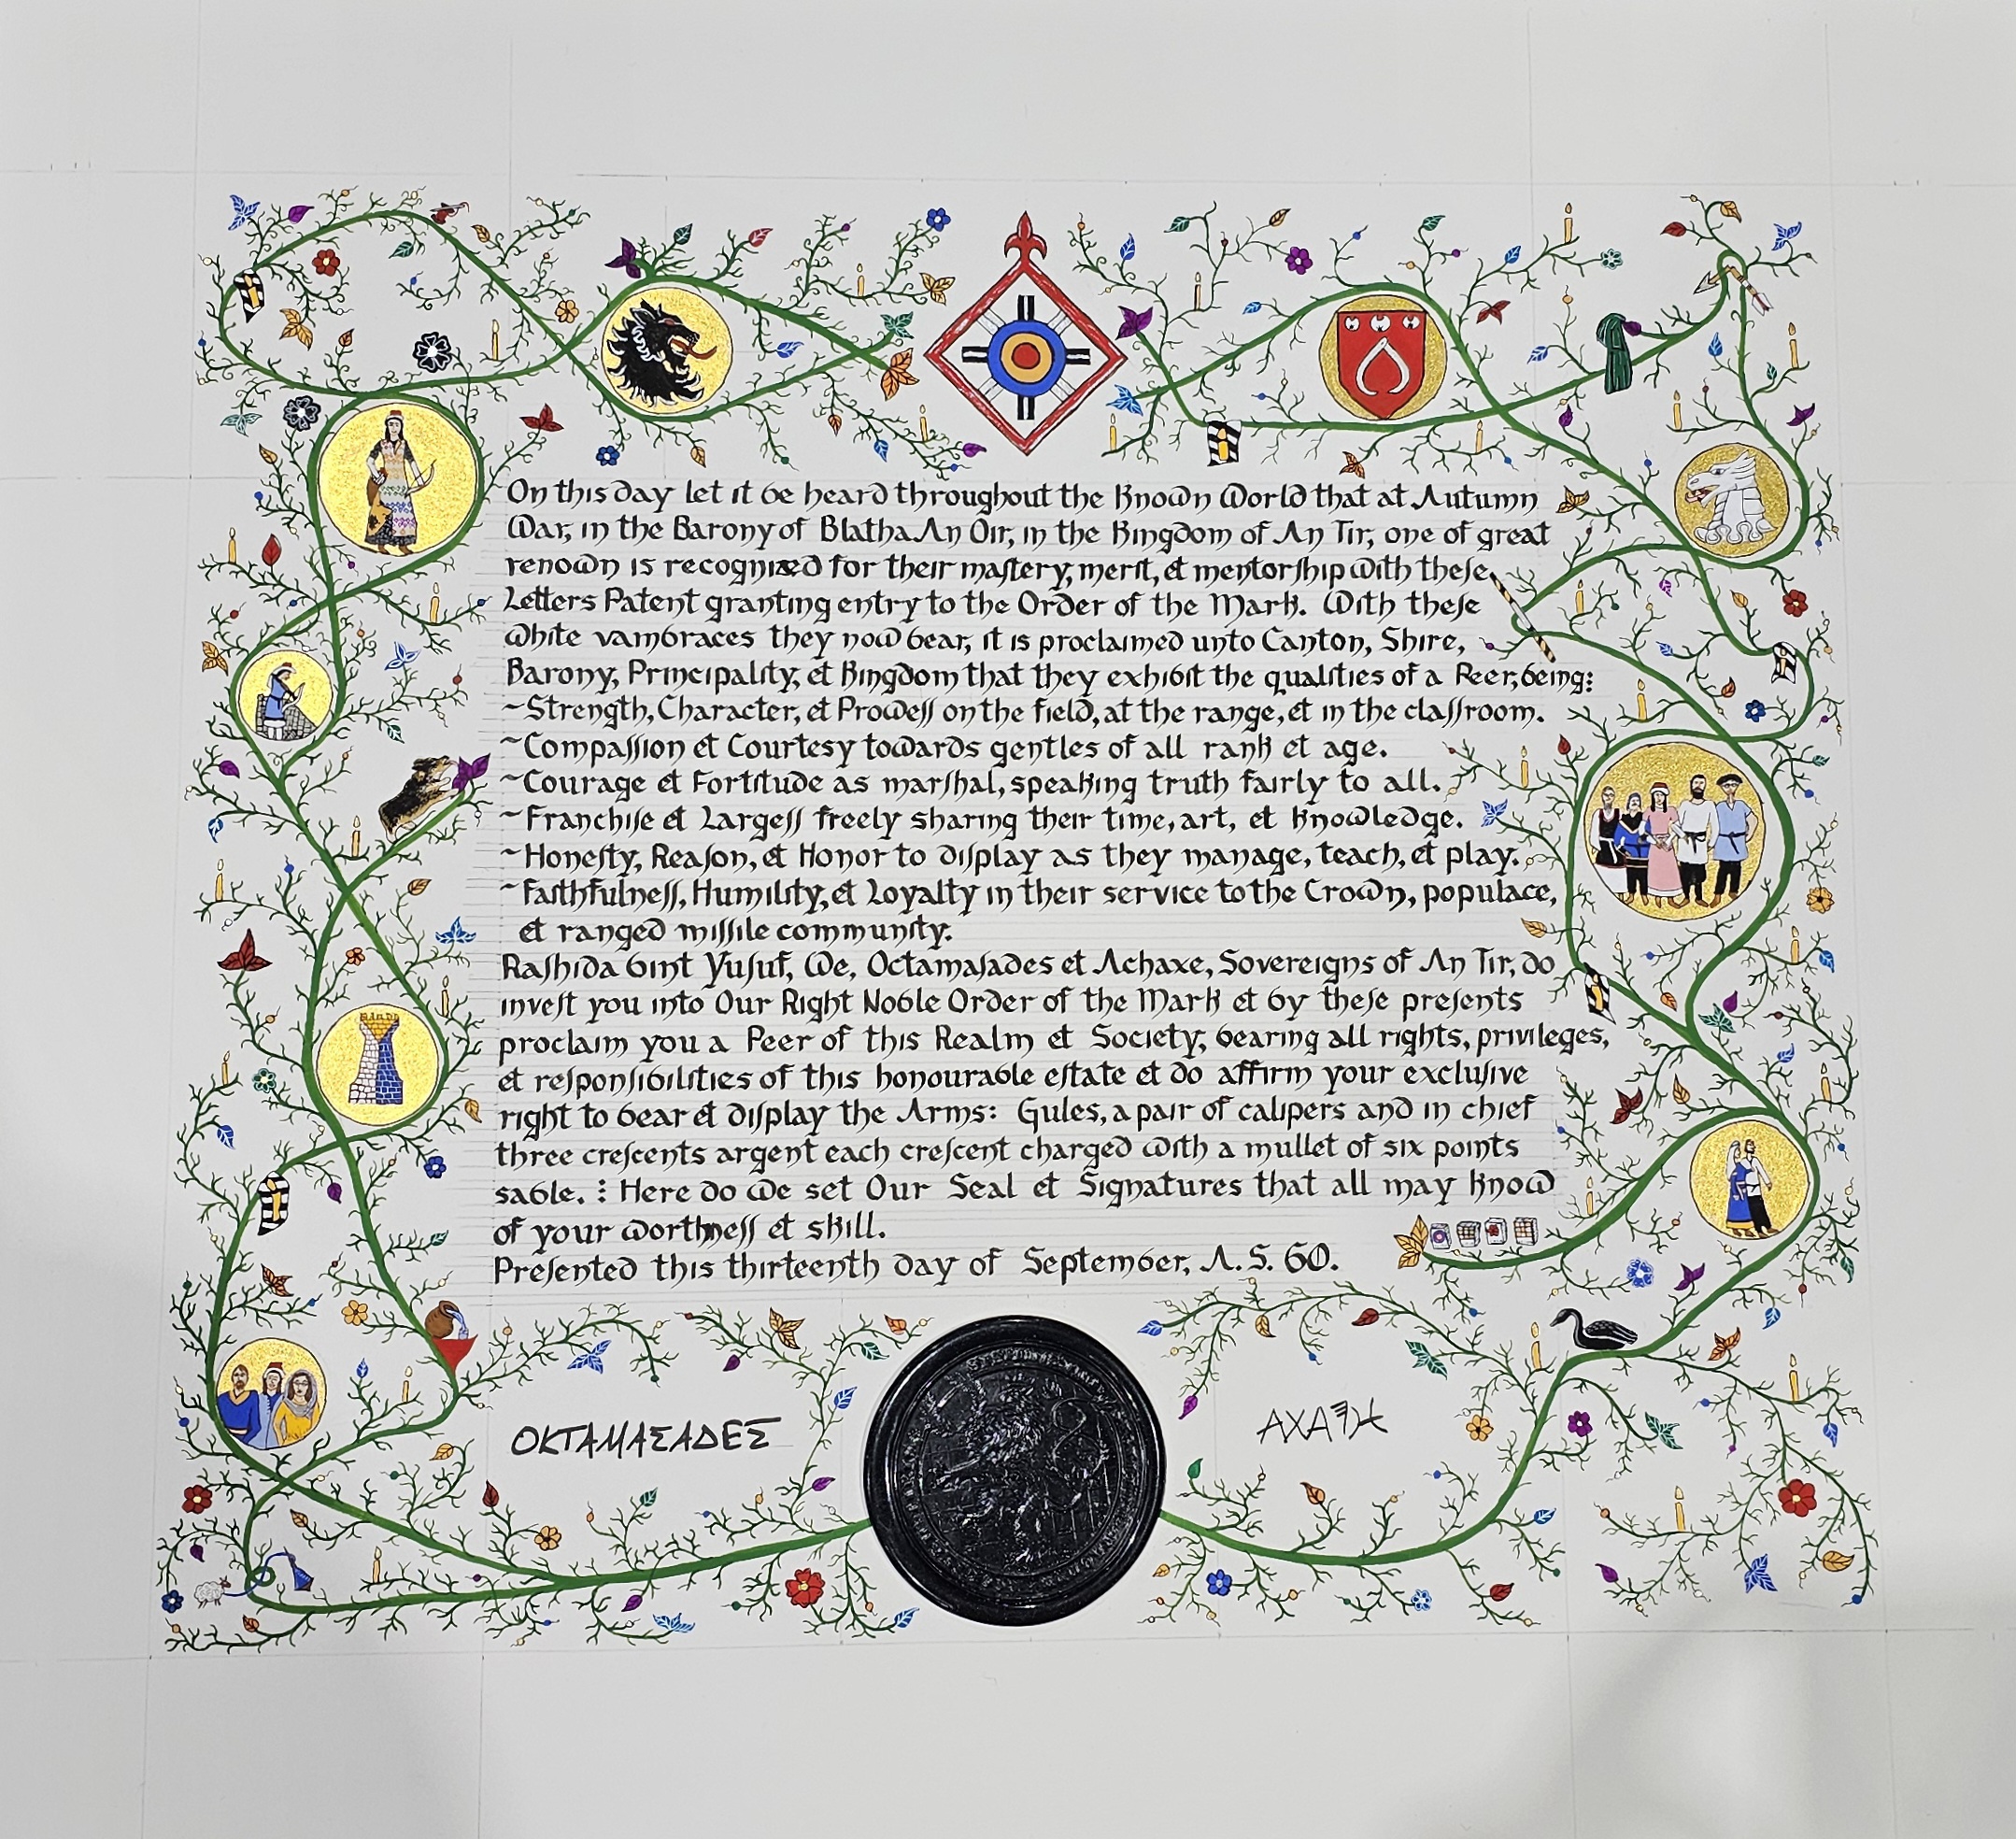 On this day let it be heard throughout the Known World that at Autumn
War, in the Barony of Blatha An Oir, in the Kingdom of An Tir, one of great
renown is recognized for their maſtery, merit, et mentorſhip with theſe
Letters Patent granting entry to the Order of the Mark. With theſe
white vambraces they now bear, it is proclaimed unto Canton, Shire,
Barony, Principality, et Kingdom that they exhibit the qualities of a Peer, being:
~Strength, Character, et Proweſſ on the field, at the range, et in the claſſroom.
~Compaſſion et Courtesy towards gentles of all rank et age.
~Courage et Fortitude as marſhal, speaking truth fairly to all.
~Franchiſe et Largeſſ freely sharing their time, art, et knowledge.
~Honeſty, Reaſon, et Honor to diſplay as they manage, teach, et play.
~Faithfulneſſ, Humility, et Loyalty in their service to the Crown, populace,
et ranged miſſile community.
Raſhida bint Yuſuf, We, Octamaſades et Achaxe, Sovereigns of An Tir, do
inveſt you into Our Right Noble Order of the Mark et by theſe preſents
proclaim you a Peer of this Realm et Society, bearing all rights, privileges,
et reſponſibilities of this honourable eſtate et do affirm your excluſive
right to bear et diſplay the Arms: Gules, a pair of calipers and in chief
three creſcents argent each creſcent charged with a mullet of six points
sable. ⁝ Here do we set Our Seal et Signatures that all may know
of your worthineſſ et skill.
Preſented this thirteenth day of September, A.S. 60.
ΟΚΤΑΜΑΣΑΔΕΣ